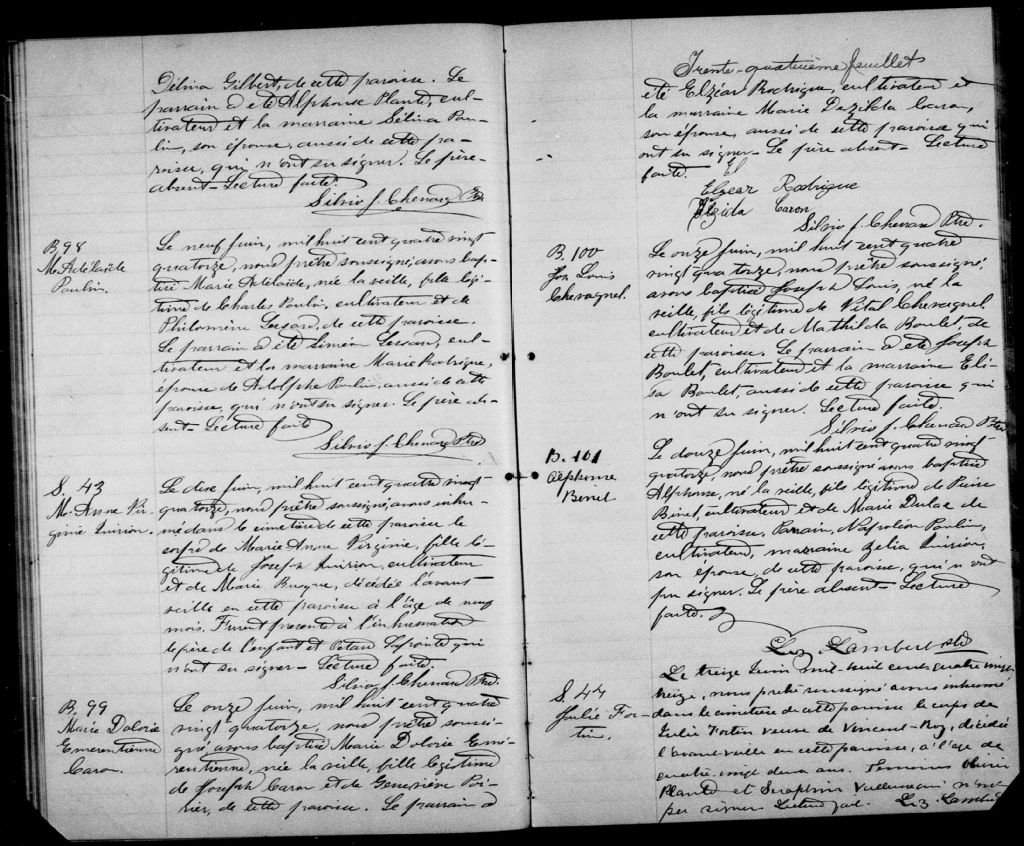 Délina Gilbert, de cette paroisse. Le
parrain a été Alphonse Plante, cul-
tivateur et la marraine Sélina Pou-
lin, son épouse, aussi de cette pa-
roisse, qui n'ont su signer. Le père
absent - Lecture faite.
Silvio J. Chenard Ptre.
B. 98
M. Adélaïde
Poulin.
Le neuf juin, mil huit cent quatre vingt
quatorze, nous prêtre soussigné, avons bap-
tisé Marie Adélaïde, née la veille, fille légi-
time de Charles Poulin, cultivateur et de
Philomène Lessard, de cette paroisse.
Le parrain a été Siméon Lessard, cul-
tivateur et la marraine Marie Rodrigue,
épouse de Adolphe Poulin, aussi de cette
paroisse, qui n'ont su signer. Le père ab-
sent - Lecture faite
Silvio J. Chenard Ptre
S. 43
M. Anne Vir-
ginie Quirion.
Le dix juin, mil huit cent quatre vingt
quatorze, nous prêtre soussigné, avons inhu-
mé dans le cimetière de cette paroisse le
corps de Marie Anne Virginie, fille lé-
gitime de Joseph Quirion, cultivateur
et de Marie Busque, décédée l'avant
veille en cette paroisse à l'âge de neuf
mois. Furent présents à l'inhumation
le père de l'enfant et Octave Lafronté qui
n'ont su signer - Lecture faite.
Silvio J. Chenard Ptre.
B. 99
Marie Dolorie
Emerentienne
Caron.
Le onze juin, mil huit cent quatre
vingt quatorze, nous prêtre soussi-
gné avons baptisé Marie Dolorie Emé-
rentienne, née la veille, fille légitime
de Joseph Caron et de Geneviève Poi-
rier, de cette paroisse. Le parrain a
Trente-quatrième feuillet
été Elzéar Rodrigue, cultivateur et
la marraine Marie Dezilda Caron,
son épouse, aussi de cette paroisse qui
ont su signer - Le père absent - Lecture
faite. El
Elzear Rodrigue
Caron
Silvio J. Chenard Ptre.
B. 100
Jos. Louis
Chevagnel.
Le onze juin, mil huit cent quatre
vingt quatorze, nous prêtre soussigné,
avons baptisé Joseph Louis, né la
veille, fils légitime de Vital Chevagnel
cultivateur et de Mathilda Boulet, de
cette paroisse. Le parrain a été Joseph
Boulet, cultivateur et la marraine Eli-
sa Boulet, aussi de cette paroisse qui
n'ont su signer. Lecture faite.
Silvio J. Chenard Ptre
B. 101
Alphonse
Binet
Le douze juin, mil huit cent quatre vingt
quatorze, nous prêtre soussigné avons baptisé
Alphonse, né la veille, fils légitime de Pierre
Binet, cultivateur, et de Marie Dulac de
cette paroisse. Parrain, Napoléon Poulin,
cultivateur, marraine Zelia Quirion,
son épouse, de cette paroisse, qui n'ont
pu signer. Le père absent - Lecture
faite.
Lambert Ptre
S. 44
Julie For-
tin.
Le treize Juin mil huit cent quatre vingt
treize, nous prêtre soussigné avons inhumé
dans le cimetière de cette paroisse le corps de
Julie Fortin veuve de Vincent Roy, décédée
l'avant veille en cette paroisse, à l'âge de
quatre vingt deux ans. Témoins
Plante et Seraphin n'ont
pu signer Lecture faite. Lambert